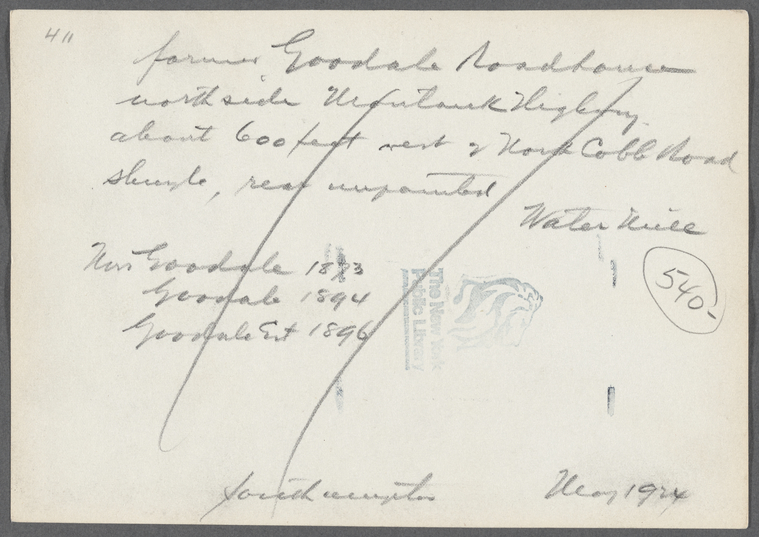 411
former Goodale Roadhouse
north side Montauk Highway
about 600 feet west of North Cobb Road
shingle, rear unpainted
Water Mill
Mrs Goodale 1873
Goodale 1894
Goodale Est 1896
The New York
Public Library
540-
Southampton May 1924